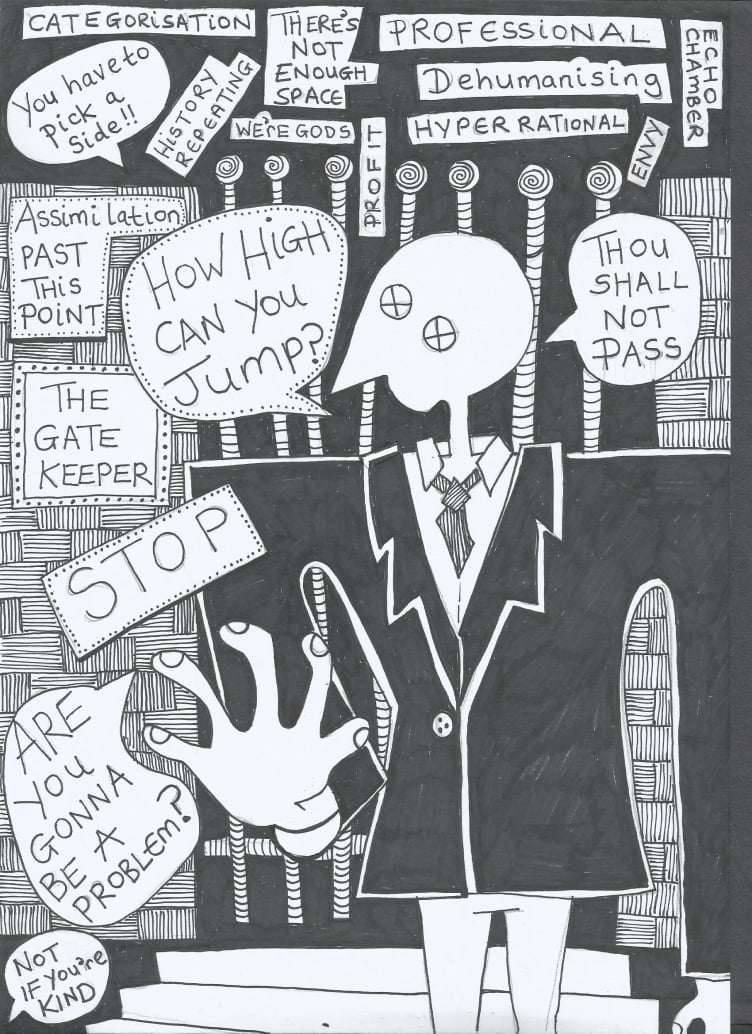 CATEGORISATION
THERE'S
NOT
ENOUGH
SPACE
PROFESSIONAL
ECHO
CHAMBER
You have to
pick a
side!!
HISTORY
REPEATING
Dehumanising
WE'RE GODS
PROFIT
HYPER RATIONAL
ENVY
Assimilation
PAST
THIS
POINT
HOW HIGH
CAN YOU
Jump?
THOU
SHALL
NOT
PASS
THE
GATE
KEEPER
STOP
ARE
YOU
GONNA
BE A
PROBLEM?
NOT
IF You're
KIND